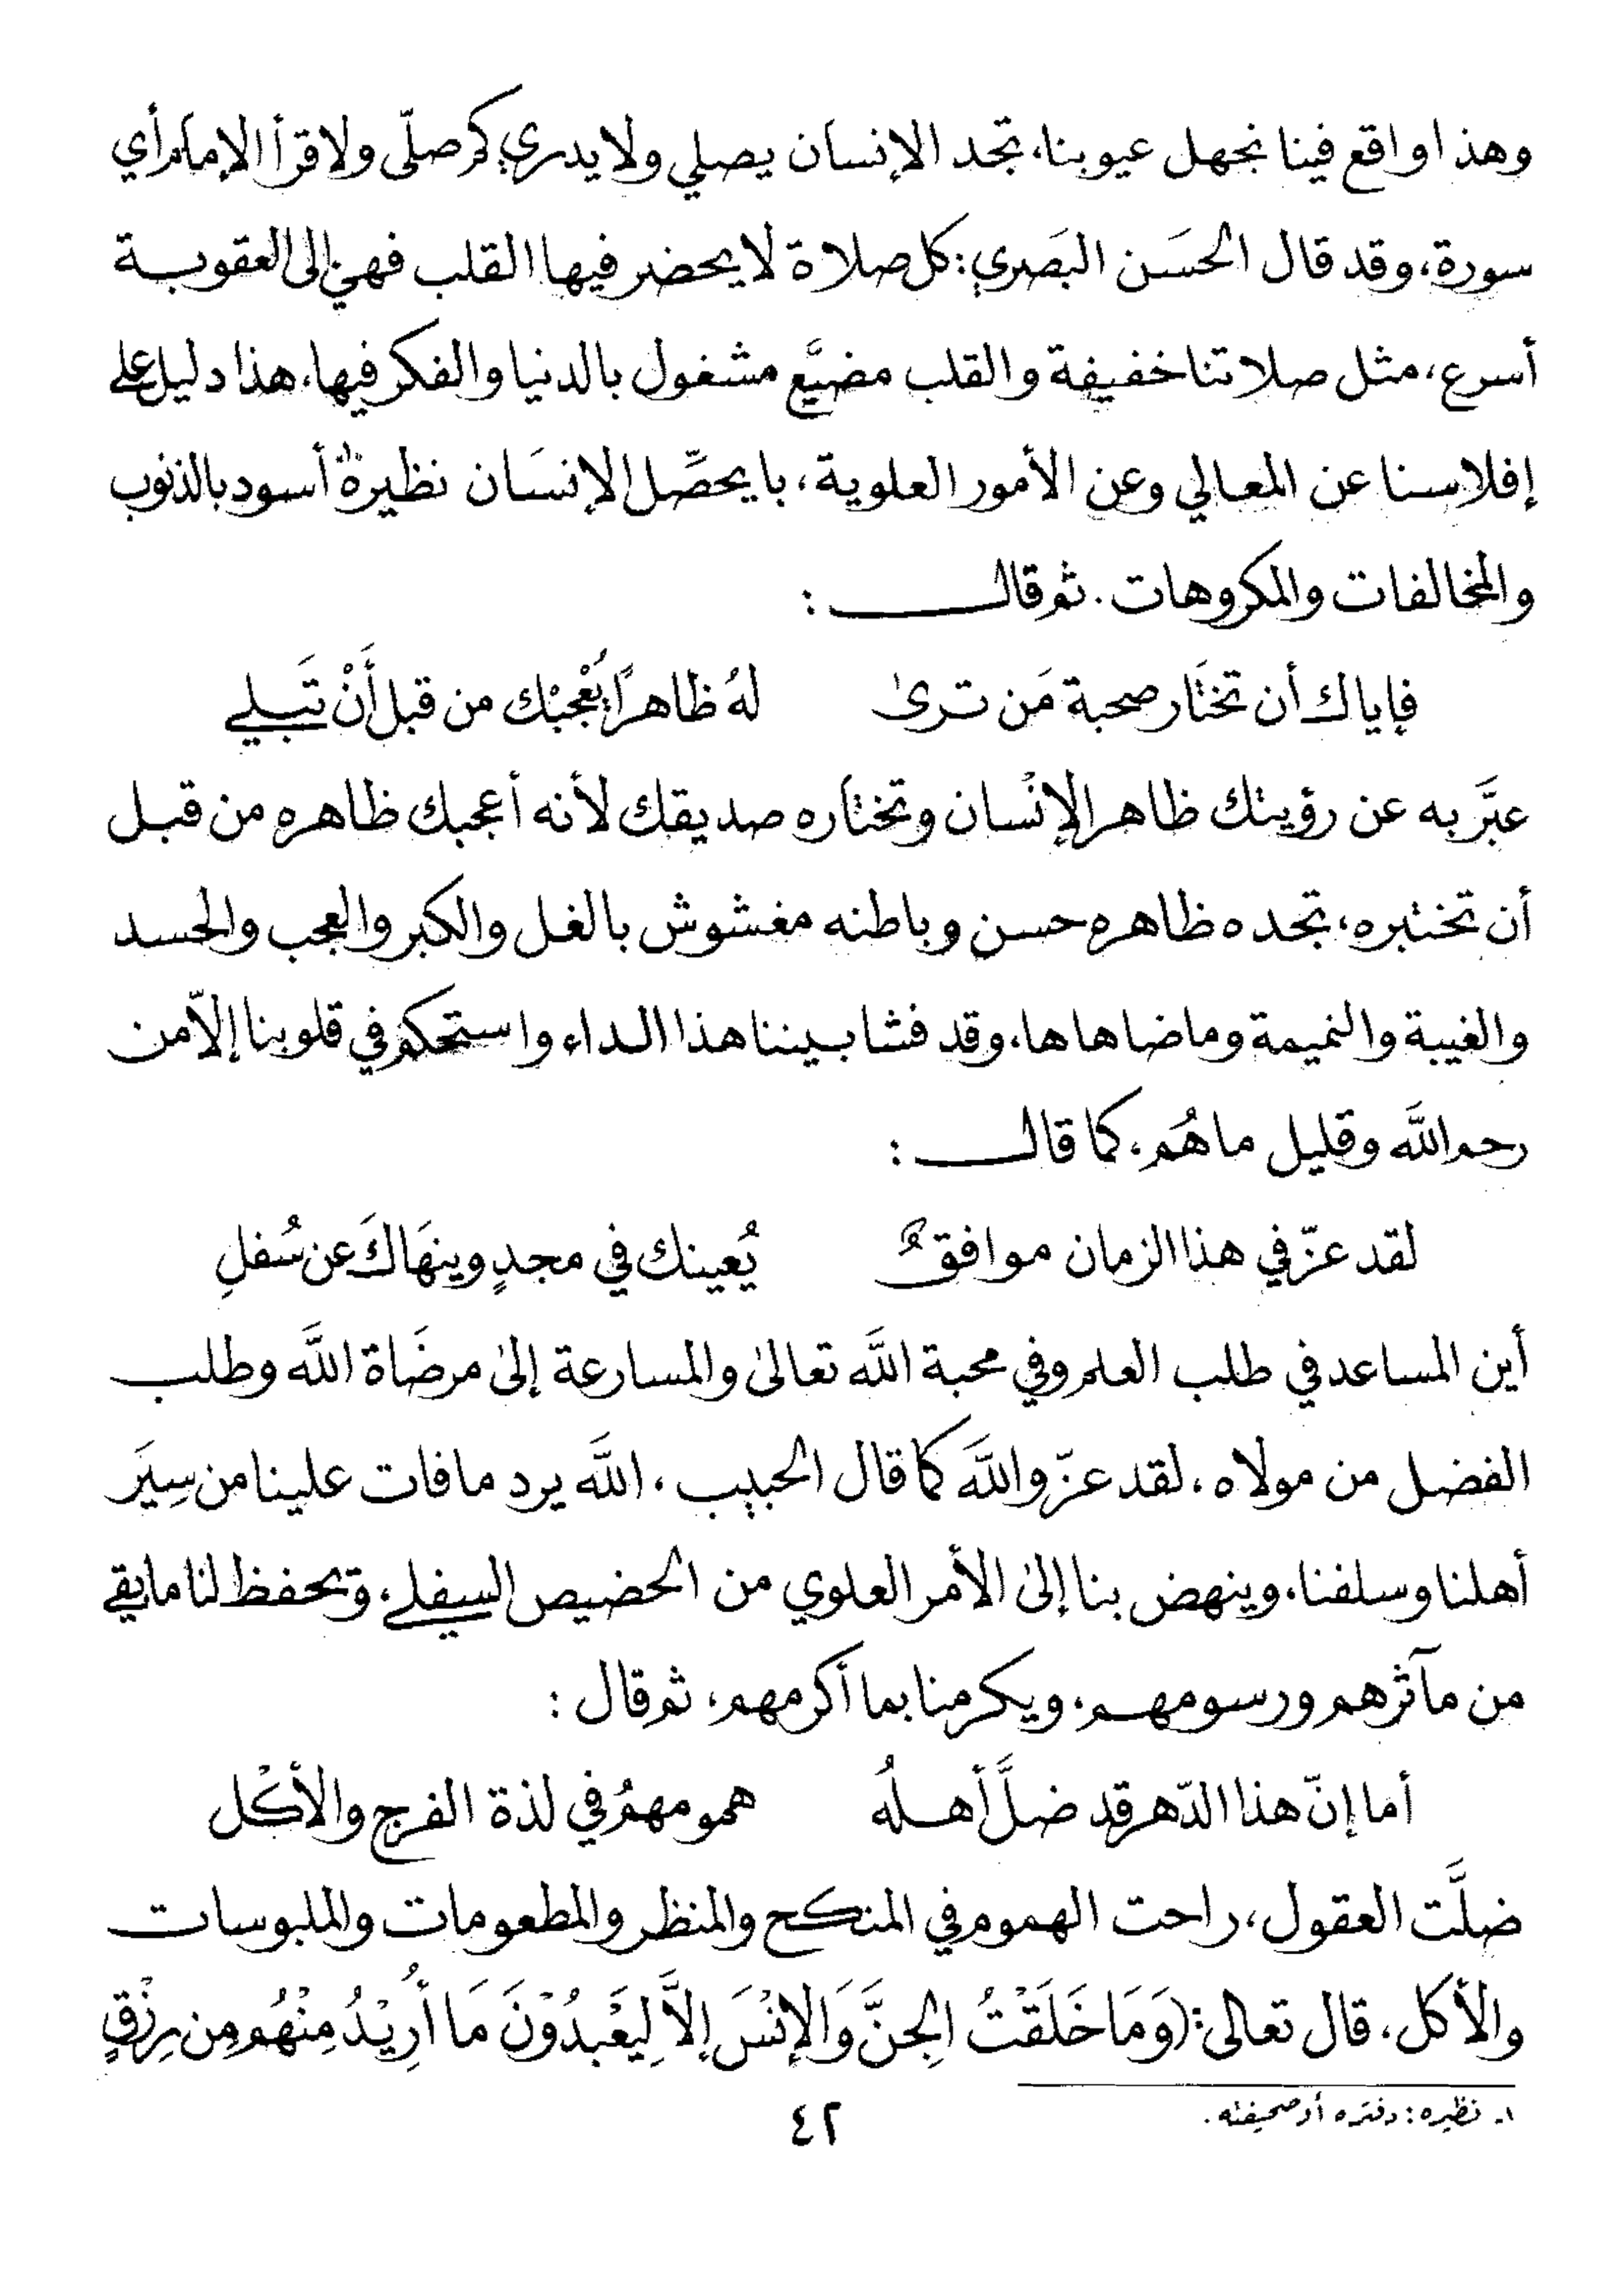 وهذا واقع فينا نجهل عيوبنا، تجد الإنسان يصلي ولا يدري كم صلّى ولا قرأ الإمام أي
سورة، وقد قال الحسَن البَصري: كل صلاة لا يحضر فيها القلب فهي إلى العقوبة
أسرع، مثل صلاتنا خفيفة والقلب مضيَّع مشغول بالدنيا والفكر فيها، هذا دليل على
إفلاسنا عن المعالي وعن الأمور العلوية، با يحصِّل الإنسَان نظيره(١) أسود بالذنوب
والمخالفات والمكروهات. ثم قال :
فإياك أن تختَار صحبة مَن ترىٰ لهُ ظاهرًا يُعْجبْك من قبل أَنْ تَبلي
عبَّر به عن رؤيتك ظاهر الإنْسان وتختاره صديقك لأنه أعجبك ظاهره من قبل
أن تختبره، تجده ظاهره حسن وباطنه مغشوش بالغل والكبر والعجب والحسد
والغيبة والنميمة وما ضاهاها، وقد فشا بيننا هذا الداء واستحكم في قلوبنا إلاّ من
رحم اللَّه وقليل ما هُم، كما قال :
لقد عزّ في هذا الزمان موافقٌ يُعينك في مجدٍ وينهَاكَ عن سُفلِ
أين المساعد في طلب العلم وفي محبة اللَّه تعالىٰ والمسارعة إلىٰ مرضَاة اللَّه وطلب
الفضل من مولاه، لقد عزّ واللَّه كما قال الحبيب، اللَّه يرد ما فات علينا من سِيَر
أهلنا وسلفنا، وينهض بنا إلىٰ الأمر العلوي من الحضيص السفلي، ويحفظ لنا ما بقي
من مآثرهم ورسومهم، ويكرمنا بما أكرمهم، ثم قال :
أما إنّ هذا الدّهر قد ضلَّ أهلُه همومهمُ في لذة الفرج والأكْل
ضلَّت العقول، راحت الهموم في المنكح والمنظر والمطعومات والملبوسات
والأكل، قال تعالى: (وَمَا خَلَقْتُ الجِنَّ وَالإِنْسَ إِلاَّ لِيَعْبدُوْنَ مَا أُرِيْدُ مِنْهُم مِن رِزْقٍ
١- نظيره: دفتره أو صحيفته.
٤٢